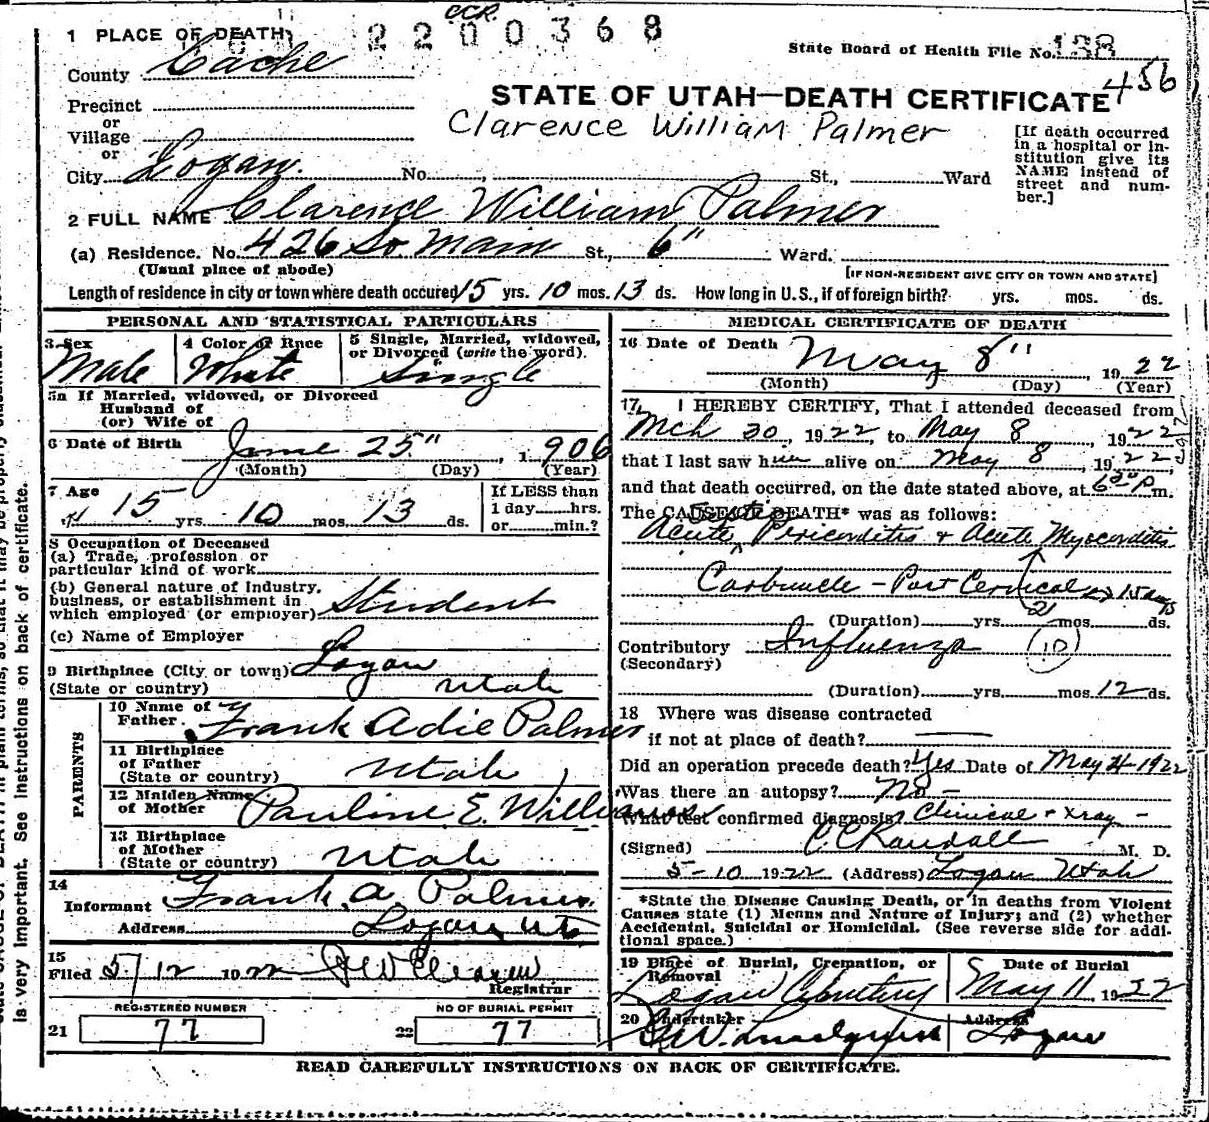 CCR.
2200368
1 PLACE OF DEATH
State Board of Health File No. 138
County Cache
456
STATE OF UTAH—DEATH CERTIFICATE
Precinct
or
Village
or
Clarence William Palmer
[If death occurred
in a hospital or in-
stitution give its
NAME instead of
street and num-
ber.]
City Logan. No. St., Ward
2 FULL NAME Clarence William Palmer
(a) Residence. No. 426 So. Main St., 6" Ward.
(Usual place of abode)
[IF NON-RESIDENT GIVE CITY OR TOWN AND STATE]
Length of residence in city or town where death occured 15 yrs. 10 mos. 13 ds. How long in U.S., if of foreign birth? yrs. mos. ds.
PERSONAL AND STATISTICAL PARTICULARS
3 Sex
Male
4 Color or Race
White
5 Single, Married, widowed,
or Divorced (write the word).
Single
5a If Married, widowed, or Divorced
Husband of
(or) Wife of
6 Date of Birth June 25", 1906
(Month) (Day) (Year)
7 Age
15 yrs 10 mos. 13 ds.
If LESS than
1 day hrs.
or min.?
8 Occupation of Deceased
(a) Trade, profession or
particular kind of work
(b) General nature of Industry,
business, or establishment in
which employed (or employer) Student
(c) Name of Employer
9 Birthplace (City or town) Logan
(State or country) Utah
PARENTS
10 Name of
Father. Frank Adie Palmer
11 Birthplace
of Father
(State or country) Utah
12 Maiden Name
of Mother Pauline E. Williams
13 Birthplace
of Mother
(State or country) Utah
14
Informant Frank. A. Palmer.
Address Logan, Ut
15
Filed 5/12 1922
Registrar
REGISTERED NUMBER
21 77
NO OF BURIAL PERMIT
22 77
MEDICAL CERTIFICATE OF DEATH
16 Date of Death May 8", 1922
(Month) (Day) (Year)
17, I HEREBY CERTIFY, That I attended deceased from
Mch 30, 1922, to May 8, 1922
that I last saw him alive on May 8, 1922
and that death occurred, on the date stated above, at 6 30 p m.
The CAUSE OF DEATH* was as follows:
Acute Pericorditis & Acute Myocorditis
Carbuncle - Post Cervical 15 days
(Duration) yrs. mos. ds.
Contributory Influenza (10)
(Secondary)
(Duration) yrs. mos. 12 ds.
18 Where was disease contracted
if not at place of death?
Did an operation precede death? Yes Date of May 4-1922
Was there an autopsy? No -
What test confirmed diagnosis? Clinical + Xray -
(Signed) C C Randall M. D.
5-10 1922 (Address) Logan Utah
*State the Disease Causing Death, or in deaths from Violent
Causes state (1) Means and Nature of Injury; and (2) whether
Accidental, Suicidal or Homicidal. (See reverse side for addi-
tional space.)
19 Place of Burial, Cremation, or
Removal
Logan Cemetery
Date of Burial
May 11, 1922
20 Undertaker
Address
Logan
READ CAREFULLY INSTRUCTIONS ON BACK OF CERTIFICATE.
is very important. See instructions on back of certificate.